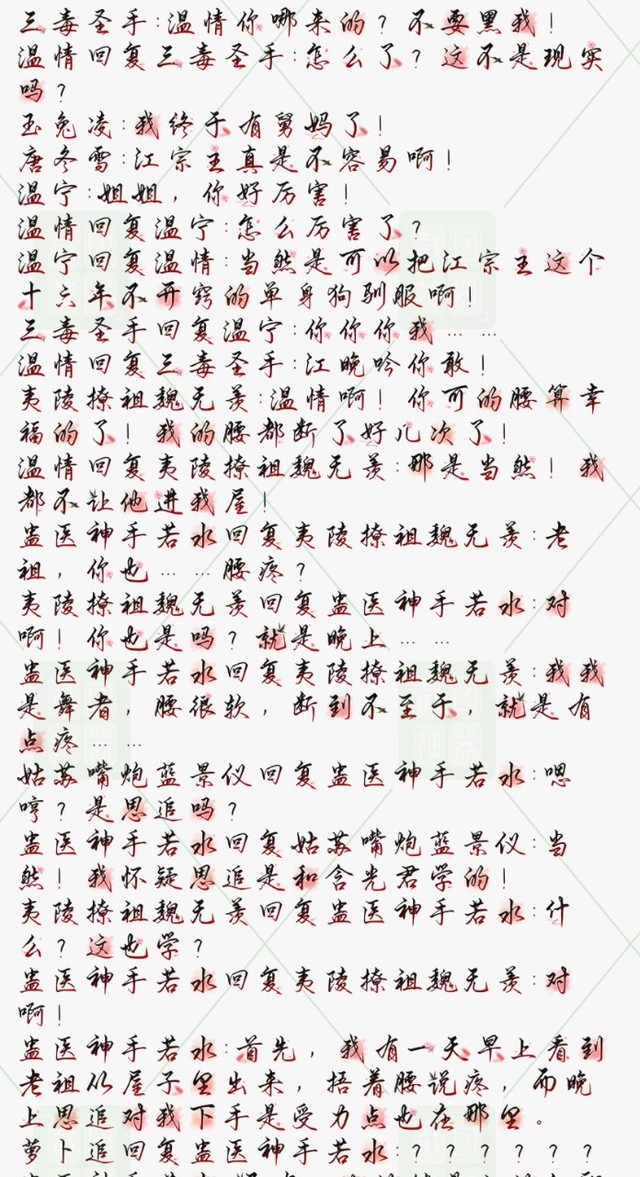 三毒圣手:温情你哪来的？不要黑我！
温情回复三毒圣手:怎么了？这不是现实
吗？
玉兔凌:我终于有舅妈了！
唐冬雪:江宗主真是不容易啊！
温宁:姐姐，你好厉害！
温情回复温宁:怎么厉害了？
温宁回复温情:当然是可以把江宗主这个
十六年不开窍的单身狗驯服啊！
三毒圣手回复温宁:你你你我……
温情回复三毒圣手:江晚吟你敢！
夷陵撩祖魏无羡:温情啊！你可的腰算幸
福的了！我的腰都断了好几次了！
温情回复夷陵撩祖魏无羡:那是当然！我
都不让他进我屋！
蛊医神手若水回复夷陵撩祖魏无羡:老
祖，你也……腰疼？
夷陵撩祖魏无羡回复蛊医神手若水:对
啊！你也是吗？就是晚上……
蛊医神手若水回复夷陵撩祖魏无羡:我我
是舞者，腰很软，断到不至于，就是有
点疼……
姑苏嘴炮蓝景仪回复蛊医神手若水:嗯
哼？是思追吗？
蛊医神手若水回复姑苏嘴炮蓝景仪:当
然！我怀疑思追是和含光君学的！
夷陵撩祖魏无羡回复蛊医神手若水:什
么？这也学？
蛊医神手若水回复夷陵撩祖魏无羡:对
啊！
蛊医神手若水:首先，我有一天早上看到
老祖从屋子里出来，捂着腰说疼，而晚
上思追对我下手是受力点也在那里。
萝卜追回复蛊医神手若水:？？？？？？